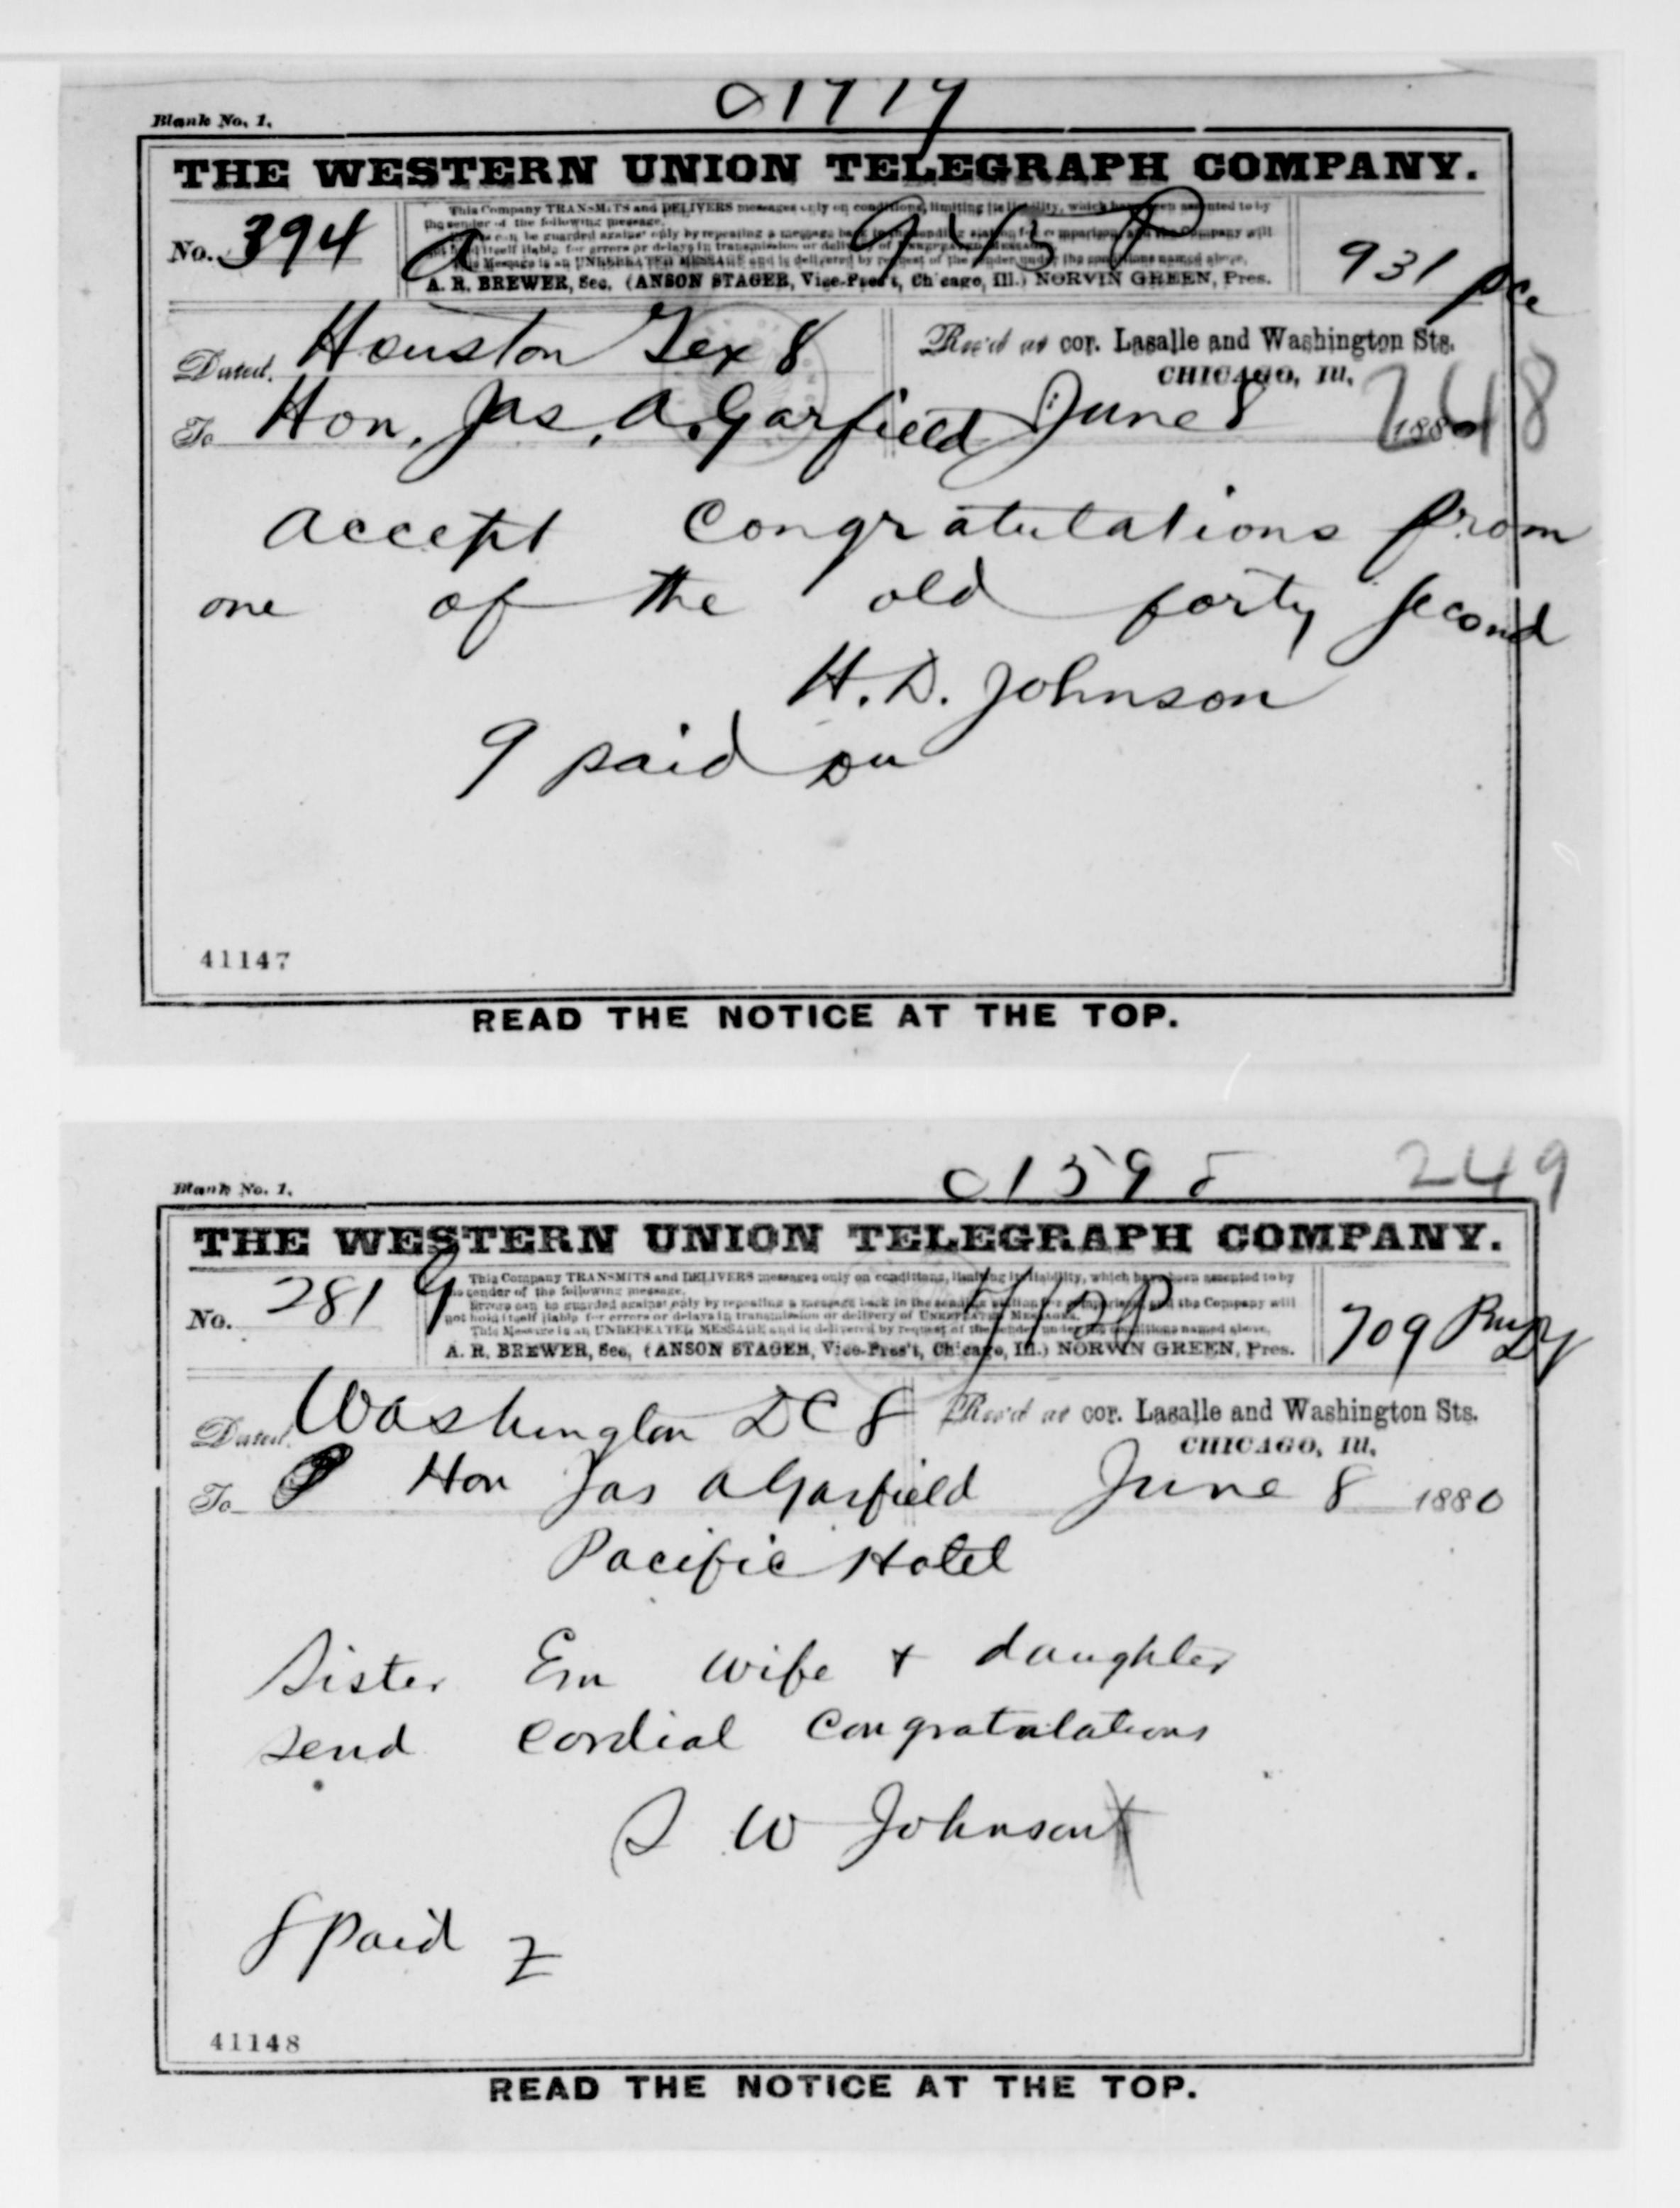 Blank No. 1.
THE WESTERN UNION TELEGRAPH COMPANY.
No. 394
This Company TRANSMITS and DELIVERS messages only on conditions, limiting its liability, which have been assented to by
the sender of the following message.
Errors can be guarded against only by repeating a message back to the sending station for comparison, and the Company will
not hold itself liable for errors or delays in transmission or delivery of UNREPEATED MESSAGES.
This Message is an UNREPEATED MESSAGE and is delivered by request of the sender under the conditions named above.
A. R. BREWER, Sec. (ANSON STAGER, Vice-Pres't, Chicago, Ill.) NORVIN GREEN, Pres.
931
Dated. Houston Tex 8
Rec'd at cor. Lasalle and Washington Sts.
CHICAGO, Ill.
248
To Hon. Jas. A. Garfield June 8 1880
accept Congratulations from
one of the old forty second
H. D. Johnson
9 paid
41147
READ THE NOTICE AT THE TOP.
249
Blank No. 1.
THE WESTERN UNION TELEGRAPH COMPANY.
No. 281
This Company TRANSMITS and DELIVERS messages only on conditions, limiting its liability, which have been assented to by
the sender of the following message.
Errors can be guarded against only by repeating a message back to the sending station for comparison, and the Company will
not hold itself liable for errors or delays in transmission or delivery of UNREPEATED MESSAGES.
This Message is an UNREPEATED MESSAGE and is delivered by request of the sender under the conditions named above.
A. R. BREWER, Sec, (ANSON STAGER, Vice-Pres't, Chicago, Ill.) NORVIN GREEN, Pres.
709
Dated. Washington DC 8
Rec'd at cor. Lasalle and Washington Sts.
CHICAGO, Ill.
To Hon Jas A Garfield June 8 1880
Pacific Hotel
Sister Em wife + daughter
send Cordial Congratulations
S W Johnson
8 Paid Z
41148
READ THE NOTICE AT THE TOP.